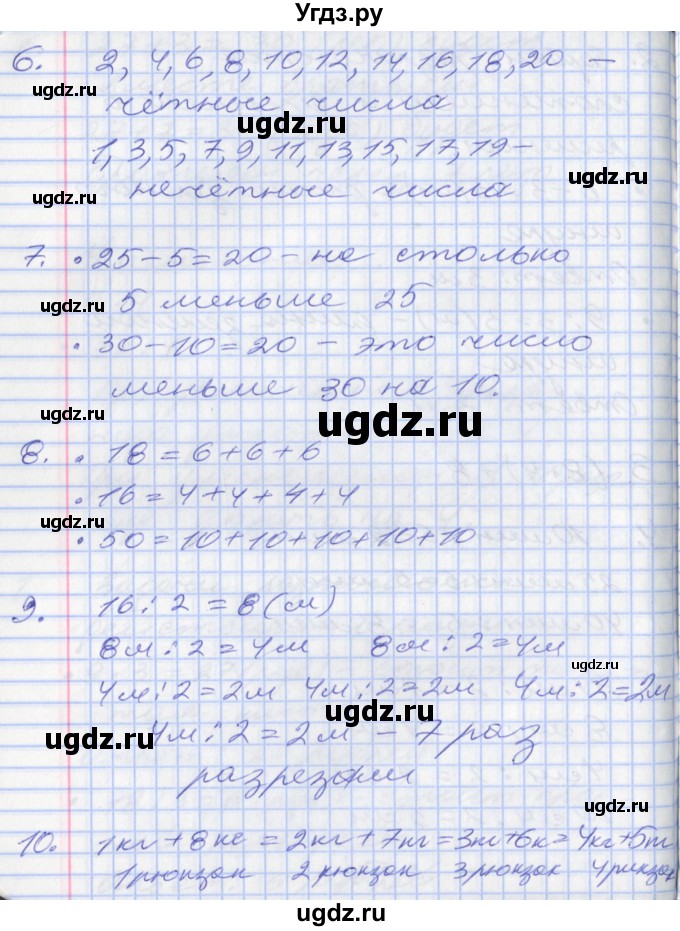 Угдз.ру
6. 2, 4, 6, 8, 10, 12, 14, 16, 18, 20 —
чётные числа
1, 3, 5, 7, 9, 11, 13, 15, 17, 19 -
нечётные числа
7. • 25 - 5 = 20 - на столько
5 меньше 25
• 30 - 10 = 20 - это число
меньше 30 на 10.
8. • 18 = 6 + 6 + 6
• 16 = 4 + 4 + 4 + 4
• 50 = 10 + 10 + 10 + 10 + 10
9. 16 : 2 = 8 (м)
8м : 2 = 4м 8м : 2 = 4м
4м : 2 = 2м 4м : 2 = 2м 4м : 2 = 2м
4м : 2 = 2м - 7 раз
разрезали
10. 1кг + 8кг = 2кг + 7кг = 3кг + 6к = 4кг + 5кг
1 рюкзак 2 рюкзак 3 рюкзак 4 рюкзак
ugdz.ru
ugdz.ru
ugdz.ru
ugdz.ru
ugdz.ru
ugdz.ru
ugdz.ru
ugdz.ru
ugdz.ru
ugdz.ru
ugdz.ru
ugdz.ru
ugdz.ru